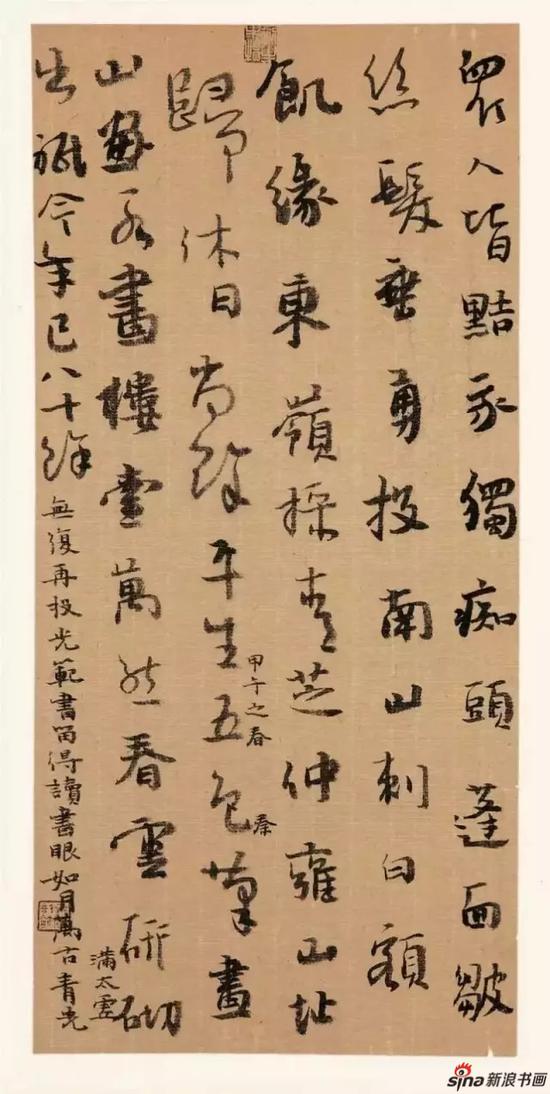 眾人皆黠我獨痴頭蓬面皺
絲髮垂勇投南山刺白額
飢緣東嶺採青芝仲雍山址
歸休日尚餘平生五色筆畫
山畫水畫樓臺萬態春雲研坳
出祇今年已八十餘無復再投光範書留得讀書眼如月萬古青光
滿太虛
甲午之春
秦
sina新浪书画